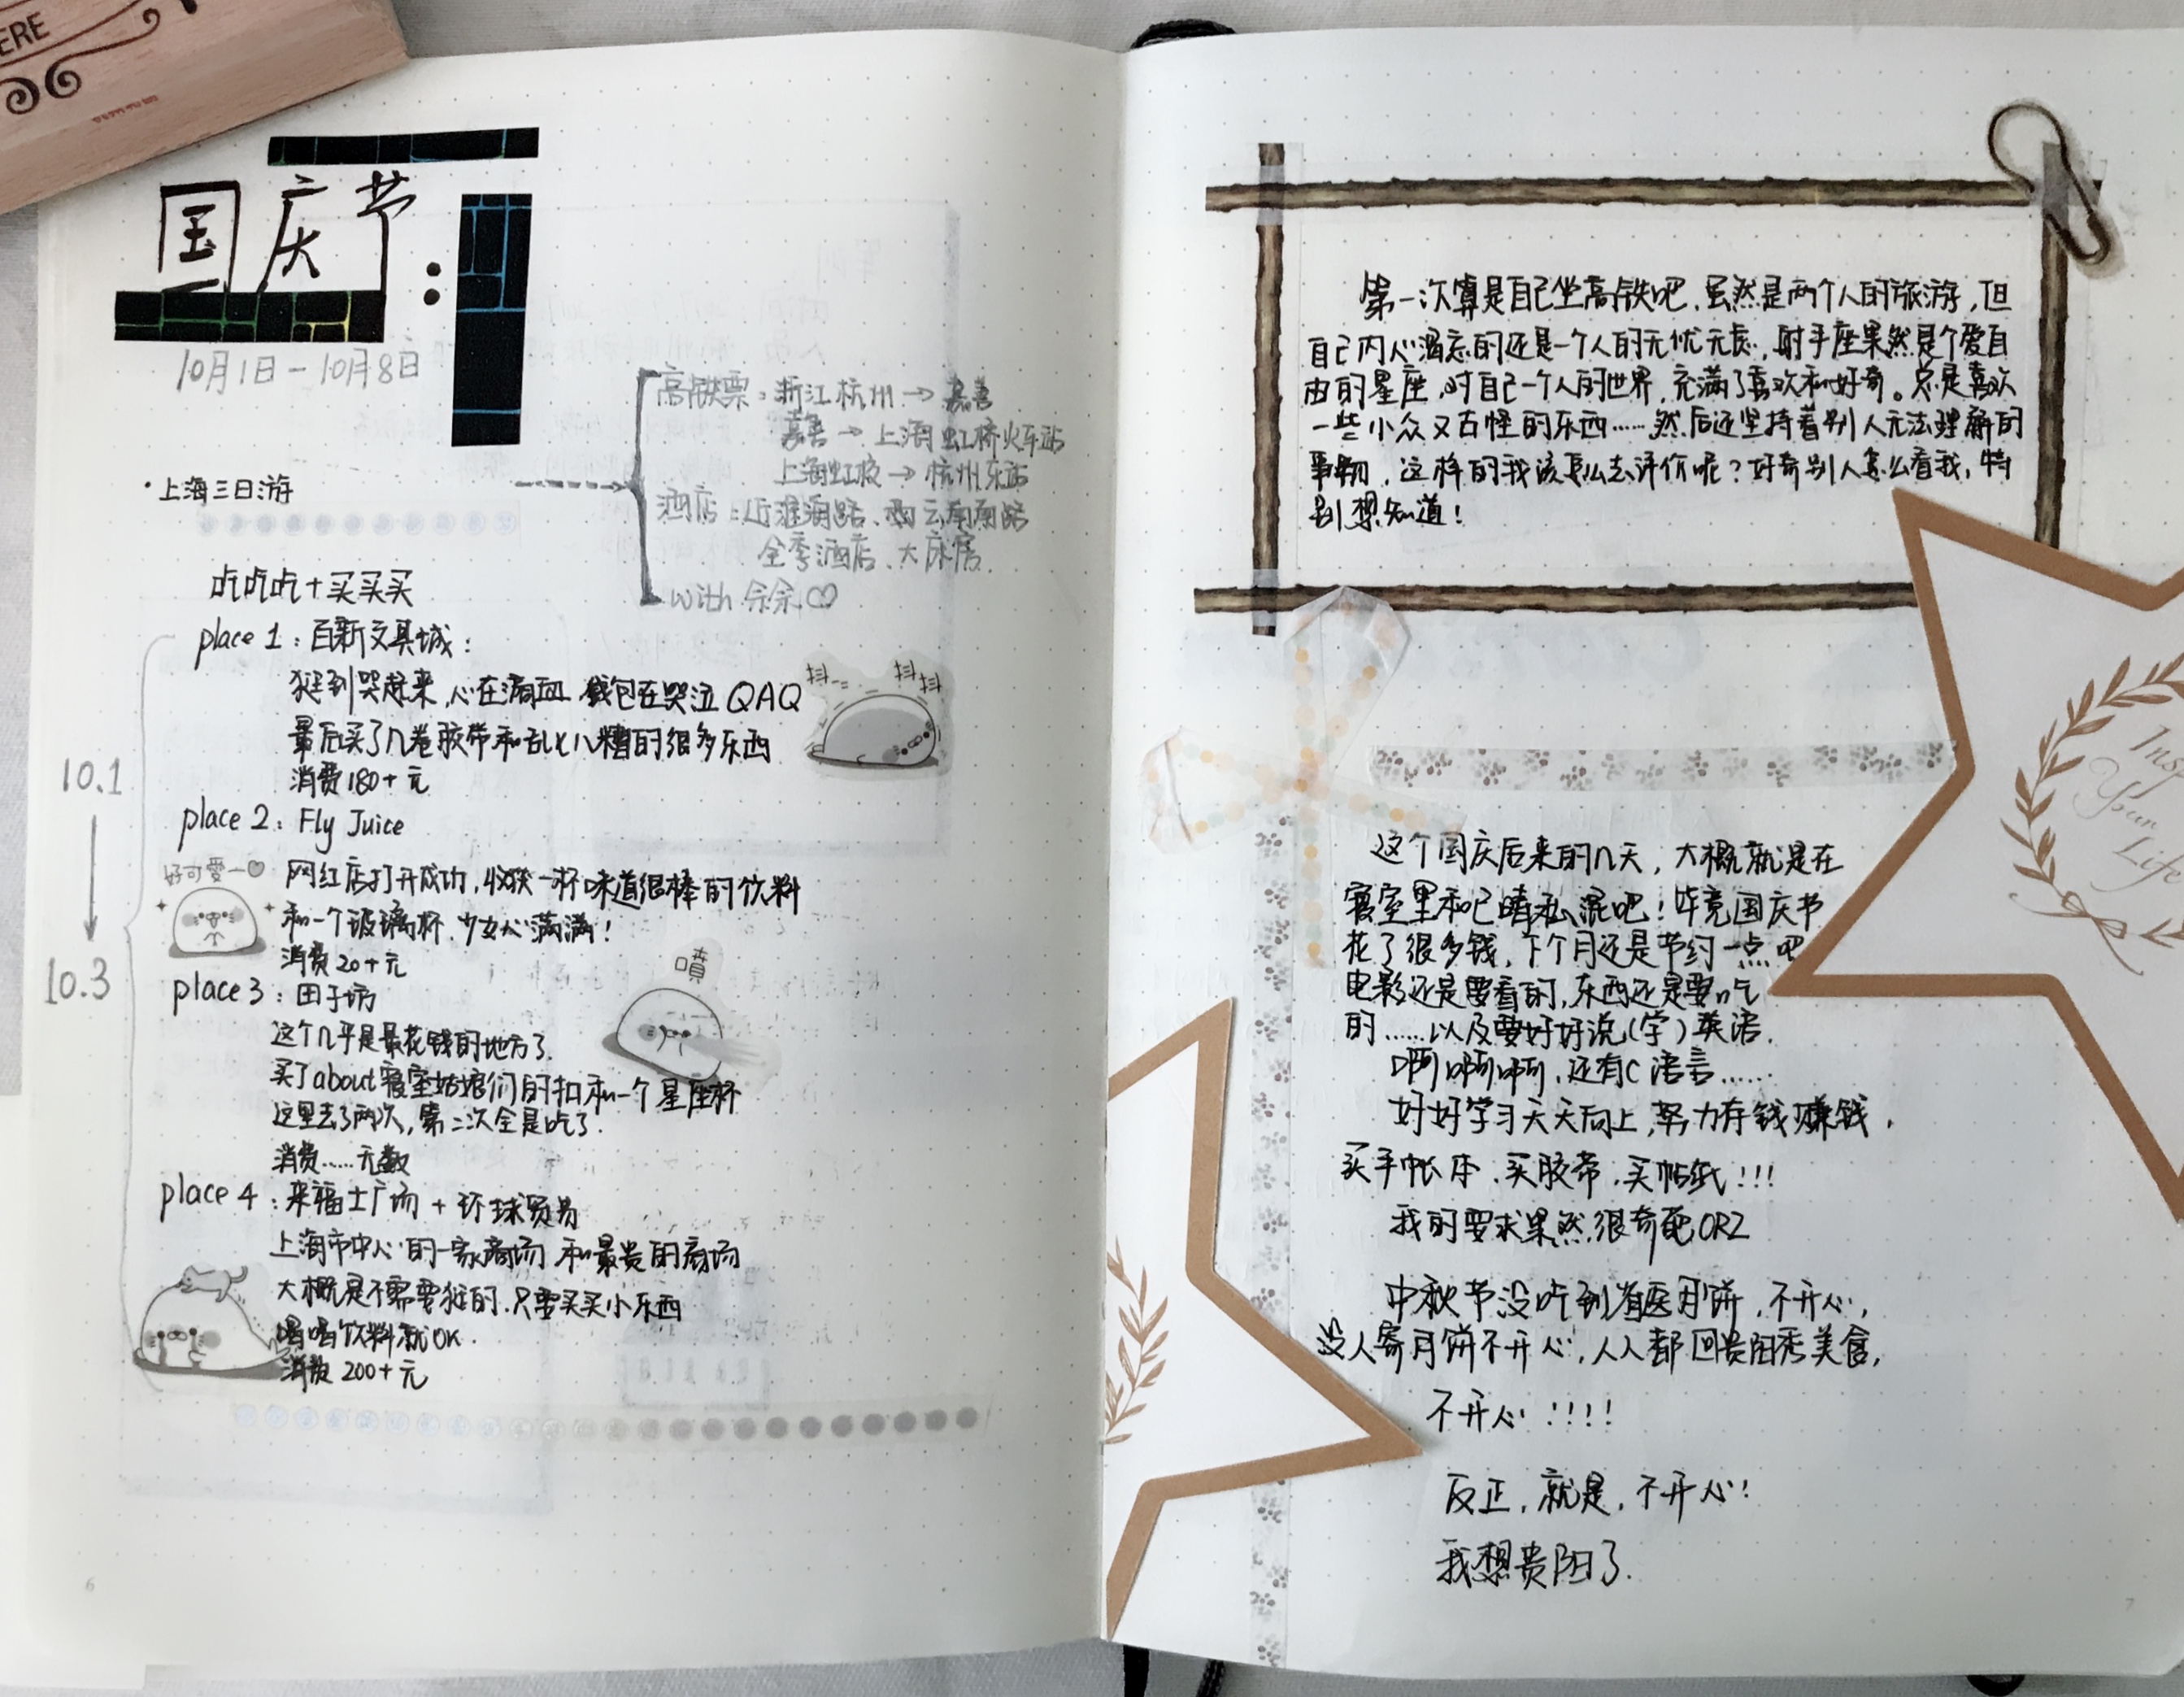 ERE
国庆节:
10月1日-10月8日
·上海三日游
高铁票:浙江杭州→嘉善
嘉善→上海虹桥火车站
上海虹桥→杭州东站
酒店:近淮海路、西云南南路
全季酒店、大床房.
with 佘佘♡
吃吃吃+买买买
place 1:百新文具城:
逛到哭起来,心在滴血 钱包在哭泣 QAQ
最后买了几卷胶带和乱七八糟的很多东西
消费180+元
抖
抖抖
10.1
10.3
place 2:Fly Juice
网红店打开成功,收获一杯味道很棒的饮料
和一个玻璃杯.少女心满满!
消费20+元
好可愛一♡
place 3:田子坊
这个几乎是最花钱的地方了.
买了about寝室姑娘们的扣和一个星座杯
这里去了两次,第二次全是吃了.
消费……无数
噴
place 4:来福士广场+环球贸易
上海市中心的一家商场 和最贵的商场
大概是不需要逛的.只要买买小东西
喝喝饮料就OK.
消费 200+元
6
第一次算是自己坐高铁吧.虽然是两个人的旅游,但
自己内心渴忘的还是一个人的无忧无虑.射手座果然是个爱自
由的星座.对自己一个人的世界.充满了喜欢和好奇。总是喜欢
一些小众又古怪的东西……然后还坚持着别人无法理解的
事物.这样的我该怎么去评价呢?好奇别人怎么看我,特
别想知道!
Insp
Your
Life
这个国庆后来的几天,大概就是在
寝室里和自己瞎混吧!毕竟国庆节
花了很多钱,下个月还是节约一点吧
电影还是要看的,东西还是要吃
的……以及要好好说(学)英语.
啊啊啊,还有C语言……
好好学习天天向上,努力存钱赚钱.
买手帐本.买胶带.买帖纸!!!
我的要求果然很奇葩ORZ
中秋节没吃到省医月饼.不开心,
没人寄月饼不开心,人人都回贵阳秀美食,
不开心!!!!
反正,就是,不开心!
我想贵阳了.
7